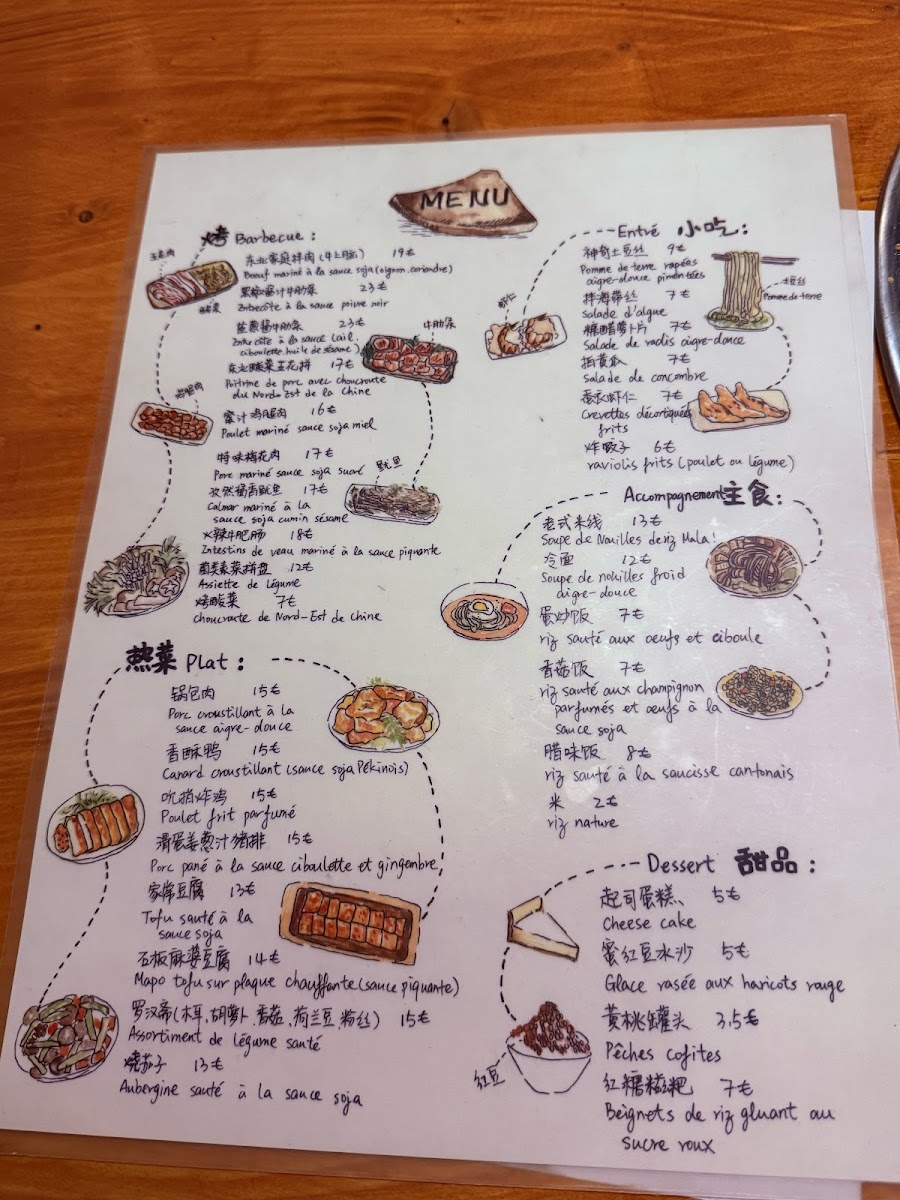 MENU
烤 Barbecue :
五花肉
酸菜
东北家庭拌肉(牛上脑) 19€
Bœuf mariné à la sauce soja(oignon,coriandre)
黑椒蜜汁牛肋条 23€
Entrecôte à la sauce poivre noir
盐葱酱牛肋条 23€
Entrecôte à la sauce (ail,
ciboulette, huile de sésame)
牛肋条
东北酸菜五花拼 17€
Poitrine de porc avec choucroute
du Nord-Est de la Chine
鸡腿肉
蜜汁鸡腿肉 16€
Poulet mariné sauce soja miel
特味梅花肉 17€
Porc mariné sauce soja
鱿鱼
孜然酱香鱿鱼 17€
Calmar mariné à la
sauce soja cumin sésame
火辣牛肥肠 18€
Intestins de veau mariné à la sauce piquante
菌类素菜拼盘 12€
Assiette de Légume
烤酸菜 7€
choucroute de Nord-Est de Chine
热菜 Plat :
锅包肉 15€
Porc croustillant à la
sauce aigre-douce
香酥鸭 15€
Canard croustillant (sauce soja Pékinois)
吮指炸鸡 15€
Poulet frit parfumé
滑蛋姜葱汁猪排 15€
Porc pané à la sauce ciboulette et gingembre
家常豆腐 13€
Tofu sauté à la
sauce soja
石板麻婆豆腐 14€
Mapo tofu sur plaque chauffante (sauce piquante)
罗汉斋(木耳、胡萝卜、香菇、荷兰豆、粉丝) 15€
Assortiment de légume sauté
烧茄子 13€
Aubergine sauté à la sauce soja
Entré 小吃 :
神奇土豆丝 9€
Pomme de terre rapées
aigre-douce pimentées
土豆丝
Pomme de terre
拌海带丝 7€
Salade d'algue
虾仁
糖醋萝卜片 7€
Salade de radis aigre-douce
拍黄瓜 7€
Salade de concombre
蛋衣虾仁 7€
Crevettes décortiquées
frits
炸餃子 6€
raviolis frits (poulet ou légume)
Accompagnement 主食 :
老式米线 13€
Soupe de Nouilles de riz Mala!
冷面 12€
Soupe de nouilles froid
aigre-douce
蛋炒饭 7€
riz sauté aux œufs et ciboule
香菇饭 7€
riz sauté aux champignon
parfumés et œufs à la
sauce soja
腊味饭 8€
riz sauté à la saucisse cantonais
米 2€
riz nature
Dessert 甜品 :
起司蛋糕、 5€
Cheese cake
蜜红豆冰沙 5€
Glace rasée aux haricots rouge
黄桃罐头 3,5€
Pêches cofites
红豆
红糖糍粑 7€
Beignets de riz gluant au
sucre roux